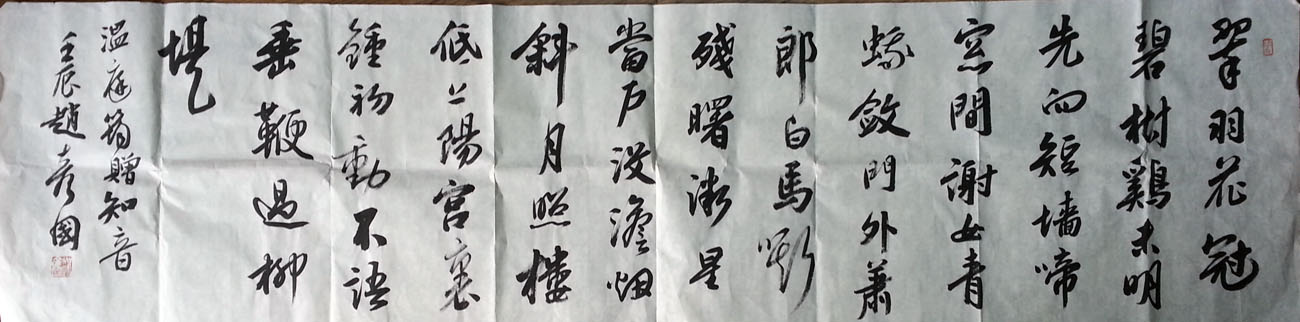 翠羽花冠
碧樹鷄未明
先向短墙啼
窓間謝女青
蛾斂門外蕭
郎白馬嘶
殘曙微星
當戶沒澹烟
斜月照樓
低上陽宮裏
鍾初動不語
垂鞭過柳
堤
溫庭筠贈知音
壬辰趙彥國